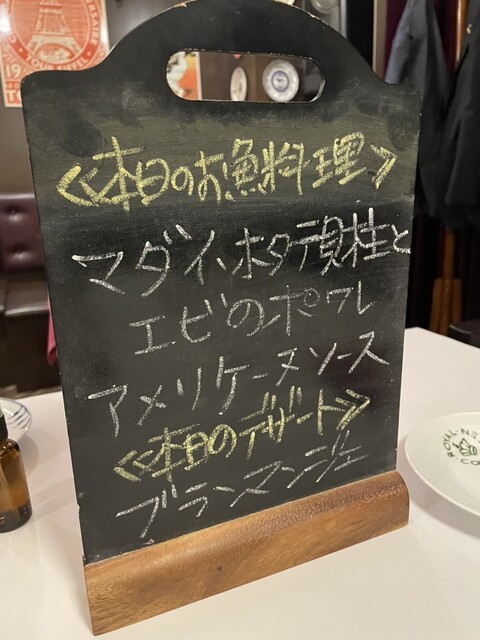 TOUR EIFFEL
《本日のお魚料理》
マダイ、ホタテ貝柱と
エビのポワレ
アメリケーヌソース
《本日のデザート》
ブランマンジェ
ROYAL